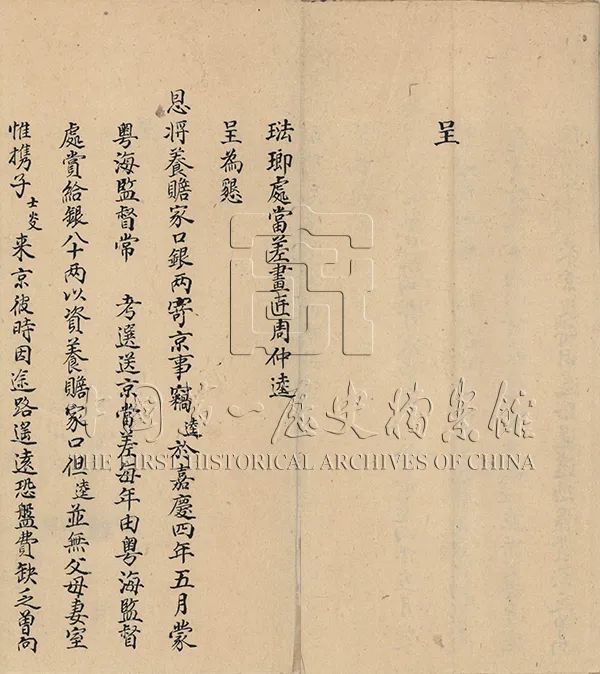 呈
琺瑯處當差畫匠周仲逵
呈為懇
恩將養贍家口銀两寄京事竊逵於嘉慶四年五月蒙
粤海監督常 考選送京當差每年由粤海監督
處賞給銀八十两以資養贍家口但逵並無父母妻室
惟攜子士炎来京彼時因途路遥遠恐盤費缺乏曽向
中國第一歷史檔案館
THE FIRST HISTORICAL ARCHIVES OF CHINA